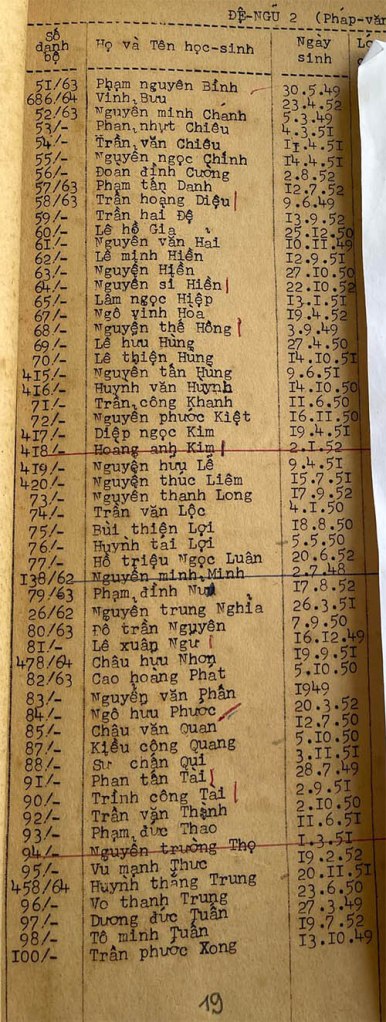 ĐỆ-NGŨ 2 (Pháp-văn
Số danh bộ Họ và Tên học-sinh Ngày sinh
51/63 Phạm nguyên Bỉnh 30.5.49
686/64 Vĩnh Bưu 23.4.52
52/63 Nguyễn minh Chánh 5.3.49
53/- Phan nhựt Chiêu 4.3.51
54/- Trần văn Chiêu 11.4.51
55/- Nguyễn ngọc Chỉnh 14.4.51
56/- Đoàn đình Cường 2.8.52
57/63 Phạm tấn Danh 12.7.52
58/63 Trần hoàng Diệu 9.6.49
59/- Trần hai Đệ 13.9.52
60/- Lê hồ Gia 25.12.50
61/- Nguyễn văn Hai 10.11.49
62/- Lê minh Hiền 12.9.51
63/- Nguyễn Hiền 27.10.50
64/- Nguyễn sĩ Hiền 22.10.52
65/- Lâm ngọc Hiệp 13.1.51
67/- Ngô vĩnh Hòa 19.4.52
68/- Nguyễn thế Hồng 3.9.49
69/- Lê hưu Hùng 27.4.50
70/- Lê thiện Hùng 14.10.51
415/- Nguyễn tấn Hùng 9.6.51
416/- Huỳnh văn Huỳnh 14.10.50
71/- Trần công Khanh 11.6.50
72/- Nguyễn phước Kiệt 16.11.50
417/- Diệp ngọc Kim 19.4.51
418/- Hoang anh Kim 2.1.52
419/- Nguyễn hưu Lê 9.4.51
420/- Nguyễn thúc Liêm 15.7.51
73/- Nguyễn thanh Long 17.9.52
74/- Trần văn Lộc 4.1.50
75/- Bùi thiện Lợi 18.8.50
76/- Huỳnh tái Lợi 5.5.50
77/- Hồ triệu Ngọc Luân 20.6.52
138/62 Nguyễn minh Minh 2.7.48
79/63 Phạm đình 17.8.52
26/62 Nguyễn trung Nghĩa 26.3.51
80/63 Đỗ trần Nguyên 7.9.50
81/- Lê xuân Ngư 16.12.49
478/64 Châu hưu Nhơn 19.9.51
82/63 Cao hoàng Phat 5.10.50
83/- Nguyễn văn Phấn 1949
84/- Ngô hưu Phước 20.3.52
85/- Châu văn Quan 12.7.50
87/- Kiều công Quang 5.10.50
88/- Sư chấn Qui 3.11.51
91/- Phan tấn Tai 28.7.49
90/- Trịnh công Tài 2.9.51
92/- Trần văn Thành 2.10.50
93/- Phạm đức Thao 11.6.51
94/- Nguyễn trường Thọ 1.3.51
95/- Vu mạnh Thưc 19.2.52
458/64 Huỳnh thắng Trung 20.11.51
96/- Vo thanh Trung 23.6.50
97/- Dương đức Tuấn 27.3.49
98/- Tô minh Tuấn 19.7.52
100/- Trần phước Xong 13.10.49
19